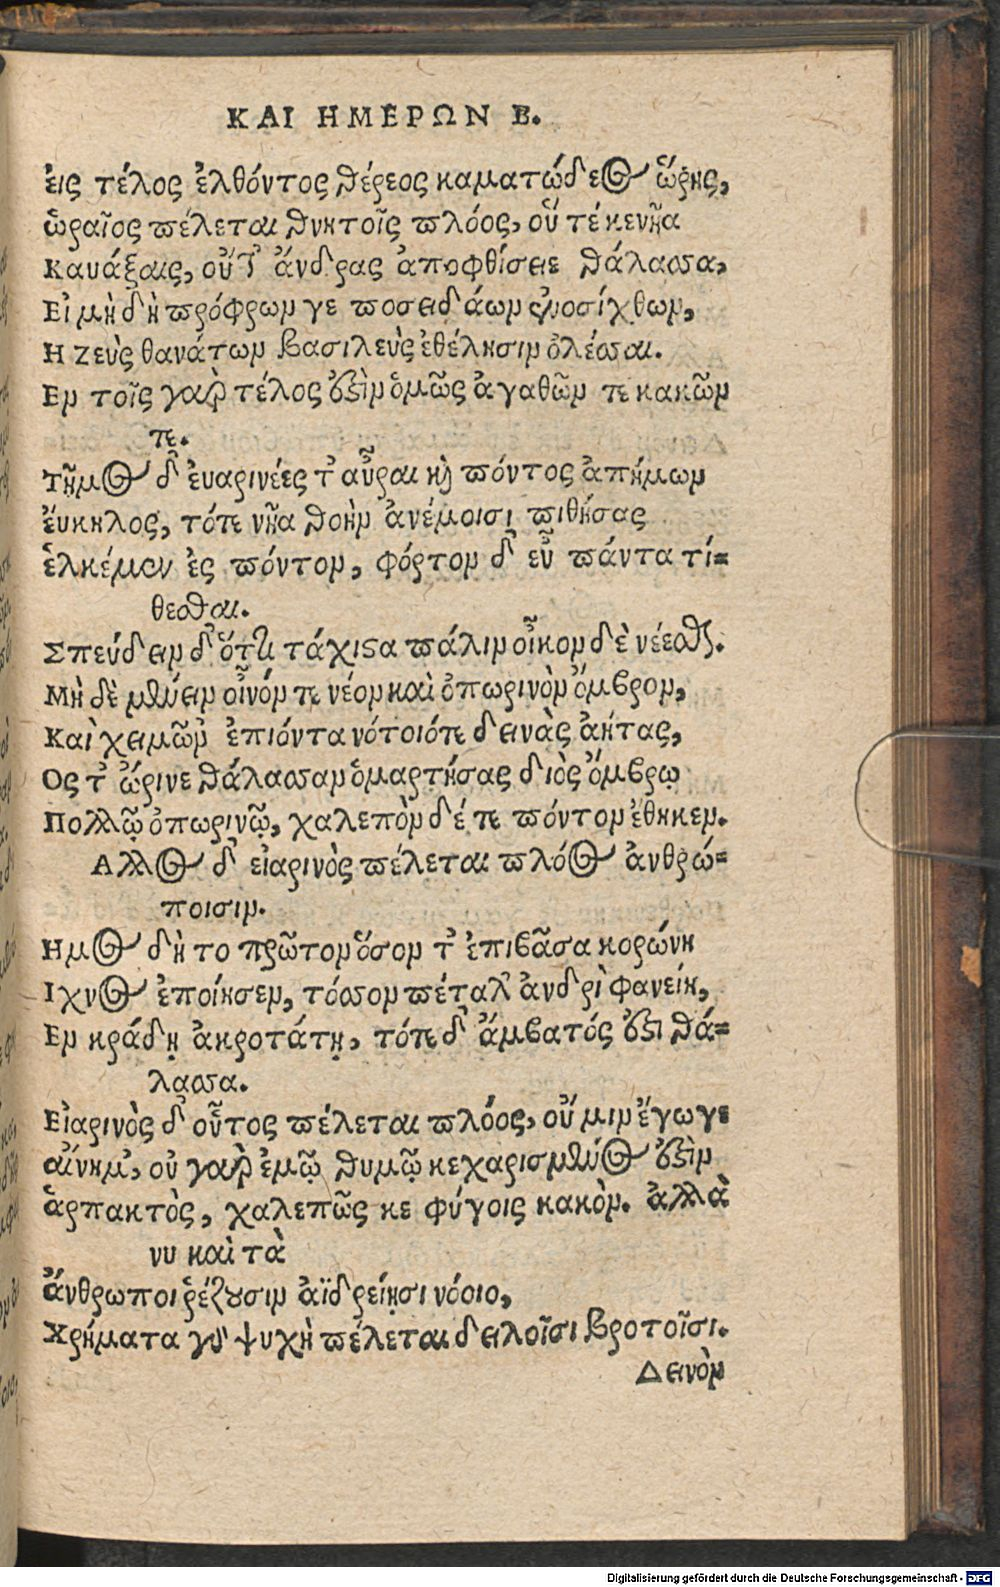 ΚΑΙ ΗΜΕΡΩΝ Β.
ἐις τέλος ἐλθόντος θέρεος καματώδεος ὥρης,
ὡραῖος πέλεται θνητοῖς πλόος, οὔ τέ κε νῆα
Καυάξαις, οὔτ' ἄνδρας ἀποφθίσειε θάλασσα,
Εἰ μὴ δὴ πρόφρων γε ποσειδάων ἐνοσίχθων,
Η Ζεὺς θανάτων βασιλεὺς ἐθέλησιν ὀλέσσαι.
Εν τοῖς γαὰρ τέλος ὀξὶν ὁμῶς ἀγαθῶν τε κακῶν
τε.
Τῆμος δ' ἐυαρινέες τ' αὖραι καὶ πόντος ἀπήμων
ἔυκηλος, τότε νῆα θοὴν ἀνέμοισι πιθήσας
ἑλκέμεν ἐς πόντον, φόρτον δ' εὖ πάντα τί=
θεσθαι.
Σπεύδειν δ' ὅττι τάχιστα πάλιν οἶκον δὲ νέεσθαι.
Μὴ δὲ μένειν οἶνόν τε νέον καὶ ὀπωρινὸν ὄμβρον,
Καὶ χειμῶν' ἐπιόντα νότοιότε δεινὰς ἀήτας,
Ος τ' ὤρινε θάλασσαν ὁμαρτήσας διὸς ὄμβρῳ
Πολλῷ ὀπωρινῷ, χαλεπὸν δέ τε πόντον ἔθηκεν.
Αλλος δ' εἰαρινὸς πέλεται πλόος ἀνθρώ=
ποισιν.
Ημος δὴ το πρῶτον ὅσον τ' ἐπιβᾶσα κορώνη
Ιχνος ἐποίησεν, τόσσον πέταλ' ἀνδρὶ φανείη,
Εν κράδῃ ἀκροτάτῃ, τότε δ' ἄμβατός ἐστι θά=
λασσα.
Εἰαρινὸς δ' οὗτος πέλεται πλόος, οὔ μιν ἔγωγε
αἴνημ', οὐ γαὰρ ἐμῷ θυμῷ κεχαρισμένος ἐστὶν
ἁρπακτὸς, χαλεπῶς κε φύγοις κακὸν. ἀλλὰ
νυ καὶ τὰ
ἄνθρωποι ῥέζουσιν ἀϊδρείῃσι νόοιο,
Χρήματα γὰρ ψυχὴ πέλεται δειλοῖσι βροτοῖσι.
Δεινὸν
Digitalisierung gefördert durch die Deutsche Forschungsgemeinschaft - DFG